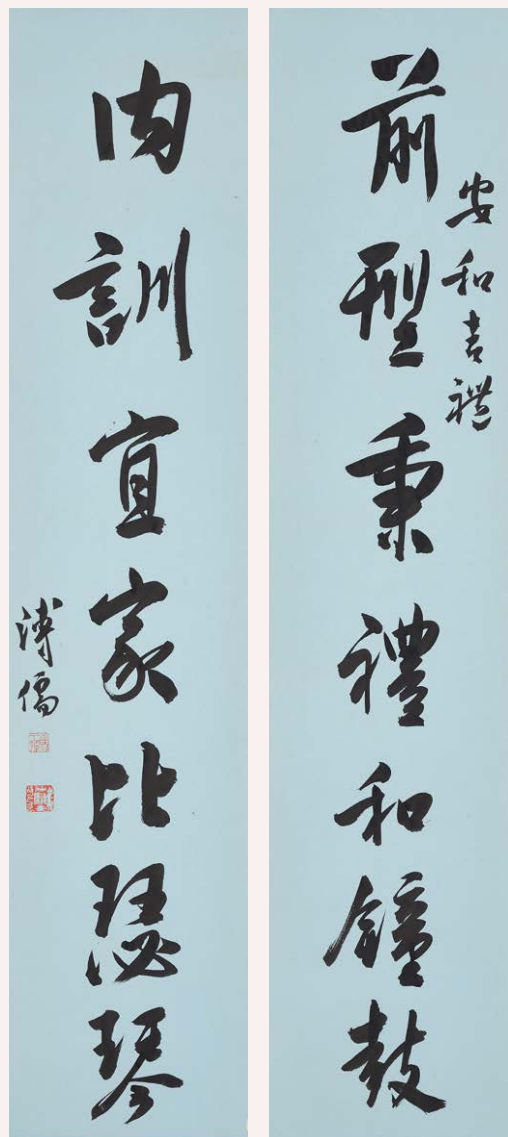 安和吉禮
前型秉禮和鐘鼓
內訓宜家比瑟琴
溥儒